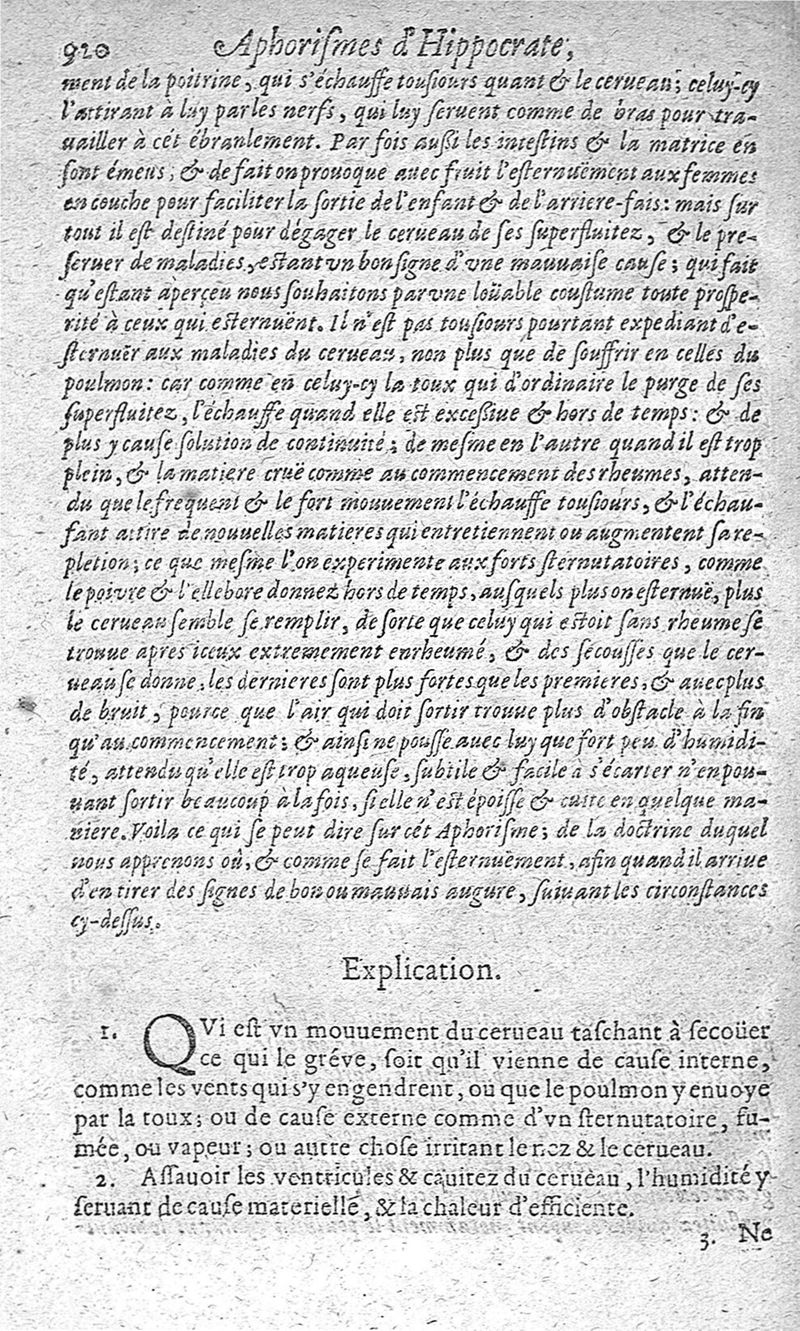 920 Aphoriſmes d'Hippocrate,
ment de la poitrine, qui s'échauffe touſiours quant & le cerueau; celuy-cy
l'attirant à luy par les nerfs, qui luy ſeruent comme de bras pour tra-
uailler à cét ébranlement. Par fois auſſi les inteſtins & la matrice en
ſont émeus, & de fait on prouoque auec fruit l'eſternuëment aux femmes
en couche pour faciliter la ſortie de l'enfant & de l'arriere-fais: mais ſur
tout il eſt deſtiné pour dégager le cerueau de ſes ſuperfluitez, & le pre-
ſeruer de maladies, eſtant vn bon ſigne d'vne mauuaiſe cauſe; qui fait
qu'eſtant aperçeu nous ſouhaitons par vne loüable couſtume toute proſpe-
rité à ceux qui eſternuënt. Il n'eſt pas touſiours pourtant expediant d'e-
ſternuër aux maladies du cerueau, non plus que de ſouffrir en celles du
poulmon: car comme en celuy-cy la toux qui d'ordinaire le purge de ſes
ſuperfluitez, l'échauffe quand elle eſt exceſſiue & hors de temps: & de
plus y cauſe ſolution de continuité; de meſme en l'autre quand il eſt trop
plein, & la matiere cruë comme au commencement des rheumes, atten-
du que le frequent & le fort mouuement l'échauffe touſiours, & l'échau-
fant attire de nouuelles matieres qui entretiennent ou augmentent ſa re-
pletion; ce que meſme l'on experimente aux forts ſternutatoires, comme
le poivre & l'ellebore donnez hors de temps, auſquels plus on eſternuë, plus
le cerueau ſemble ſe remplir, de ſorte que celuy qui eſtoit ſans rheume ſe
trouue apres iceux extremement enrheumé, & des ſecouſſes que le cer-
ueau ſe donne, les dernieres ſont plus fortes que les premieres, & auec plus
de bruit, pource que l'air qui doit ſortir trouue plus d'obſtacle à la fin
qu'au commencement; & ainſi ne pouſſe auec luy que fort peu d'humidi-
té, attendu qu'elle eſt trop aqueuſe, ſubtile & facile à s'écarter n'en pou-
uant ſortir beaucoup à la fois, ſi elle n'eſt époiſſe & cuite en quelque ma-
niere. Voila ce qui ſe peut dire ſur cét Aphoriſme; de la doctrine duquel
nous apprenons où, & comme ſe fait l'eſternuëment, afin quand il arriue
d'en tirer des ſignes de bon ou mauuais augure, ſuiuant les circonſtances
cy-deſſus.
Explication.
1. QVi eſt vn mouuement du cerueau taſchant à ſecoüer
ce qui le gréve, ſoit qu'il vienne de cauſe interne,
comme les vents qui s'y engendrent, ou que le poulmon y enuoye
par la toux; ou de cauſe externe comme d'vn ſternutatoire, fu-
mée, ou vapeur; ou autre choſe irritant le nez & le cerueau.
2. Aſſauoir les ventricules & cauitez du cerueau, l'humidité y
ſeruant de cauſe materielle, & la chaleur d'efficiente.
3. Ne